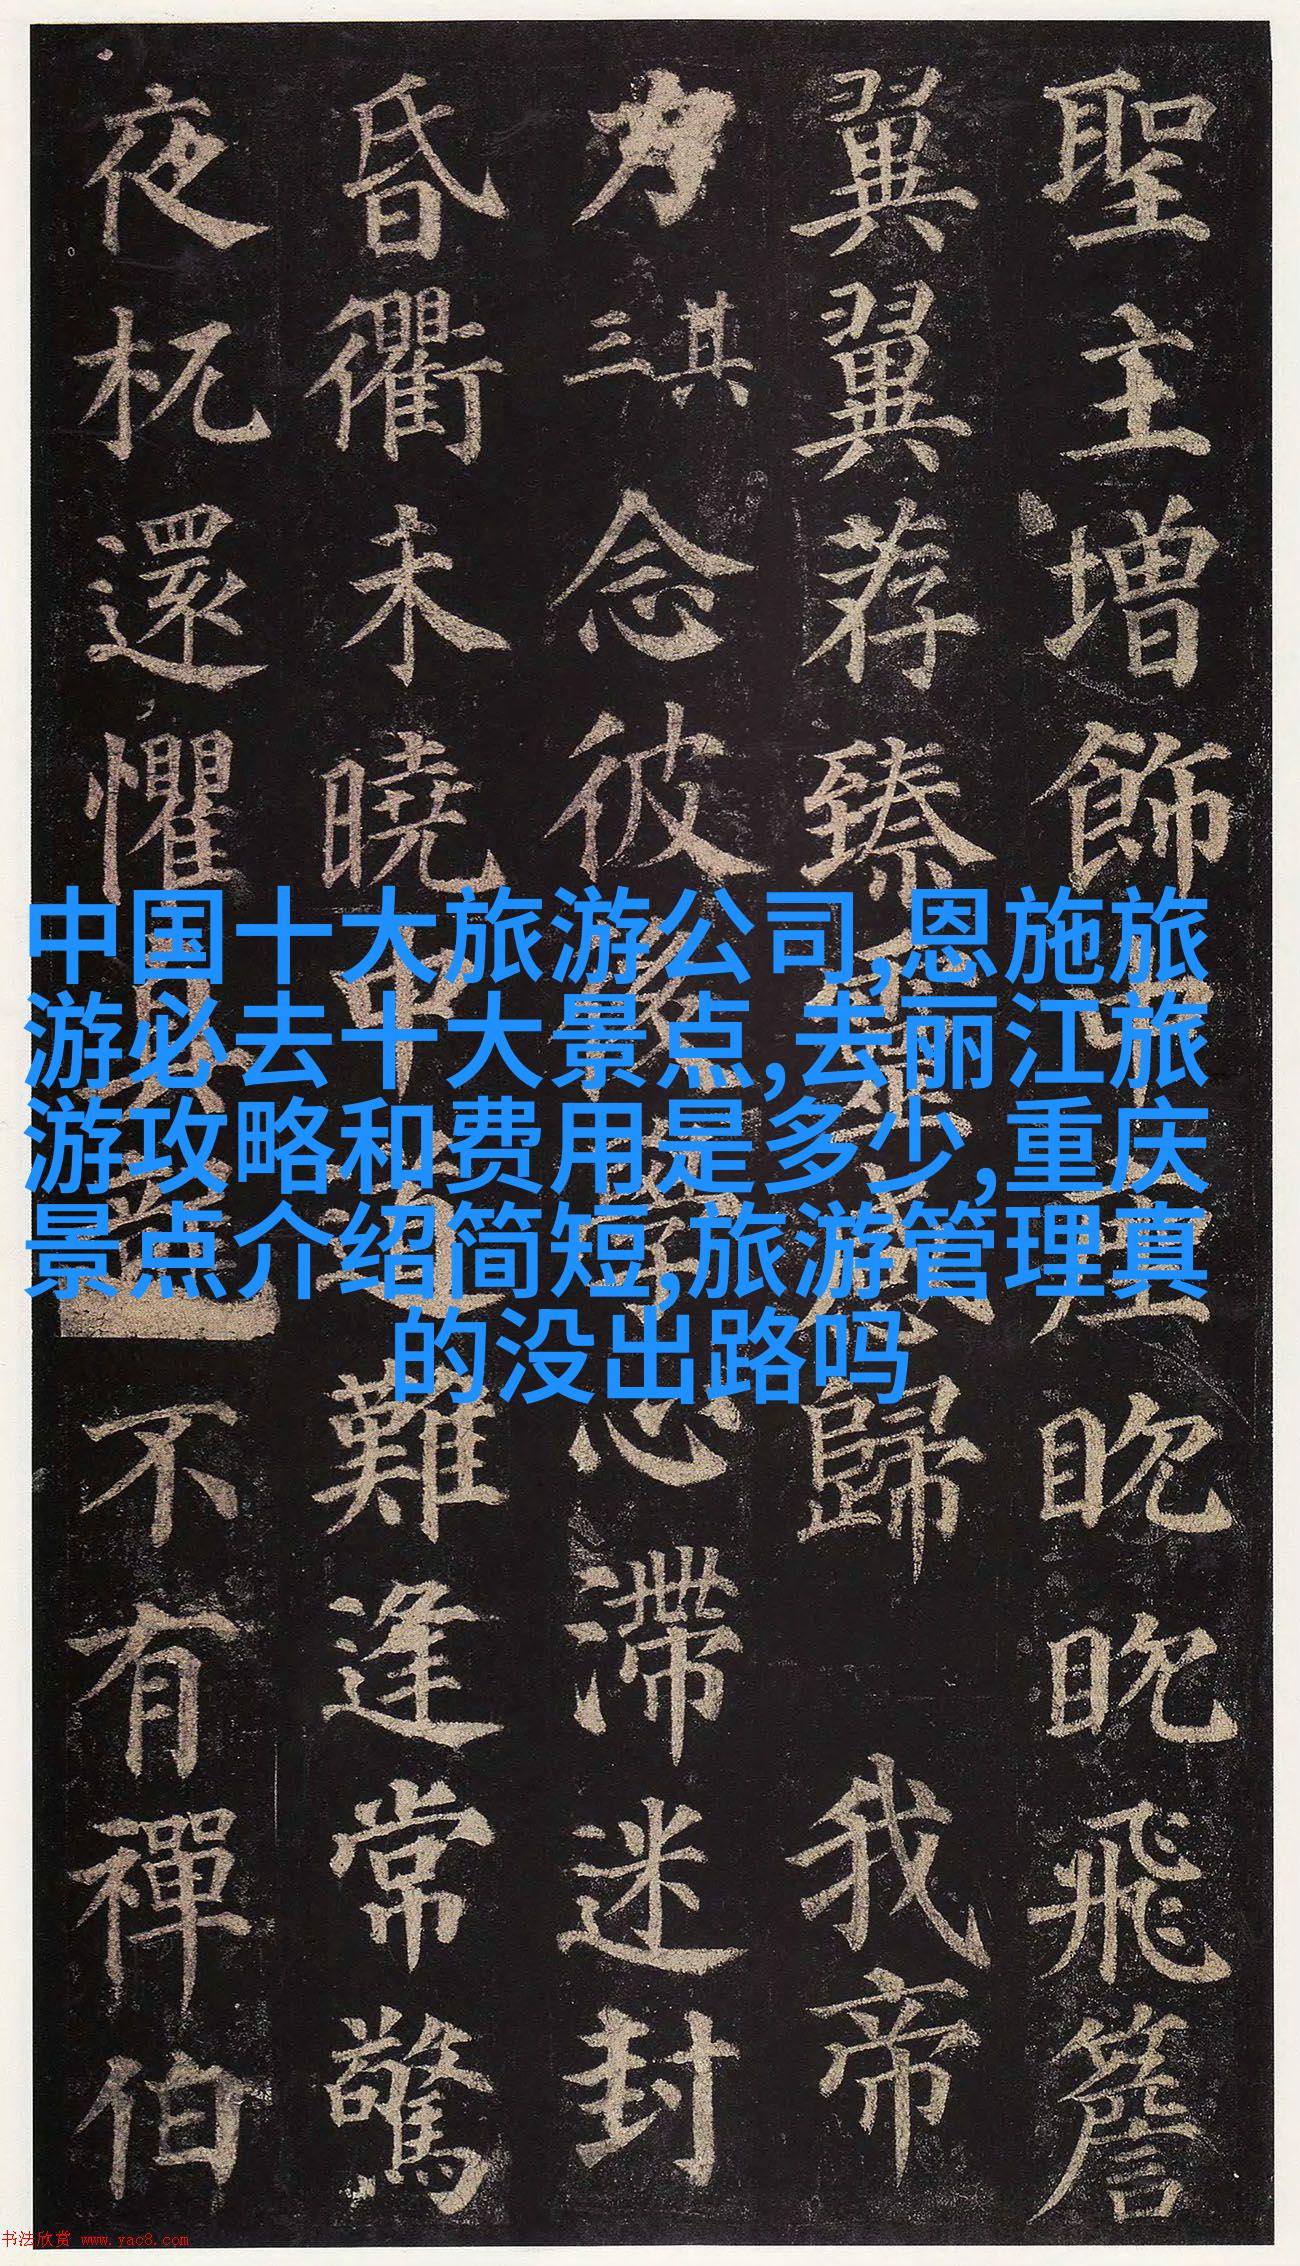 聖主增飾眈眈飛簷
翼翼荐臻歸我帝
力其三念彼心滯迷封
昏衢未曉中難逢常驚
夜杌還懼不有禪伯
中国十大旅游公司,恩施旅
游必去十大景点,去丽江旅
游攻略和费用是多少,重庆
景点介绍简短,旅游管理真
的没出路吗
书法欣赏 www.yac8.com